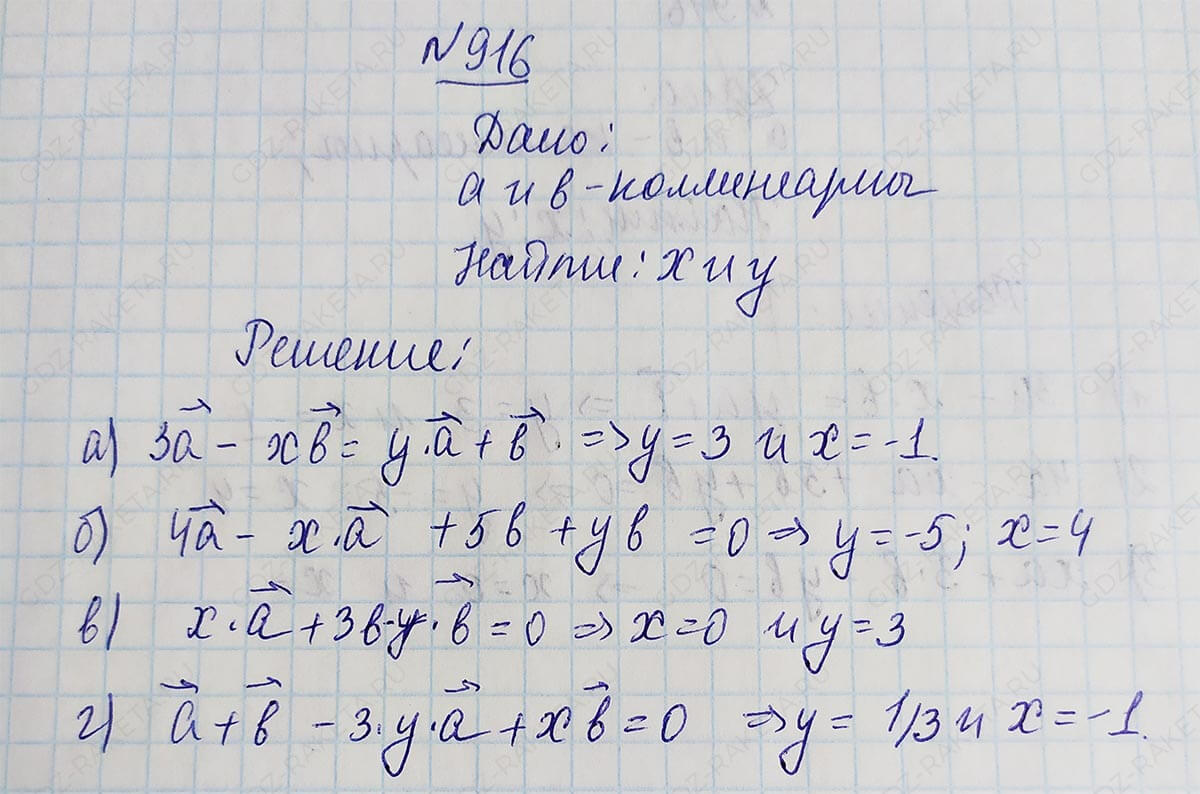 №916
Дано:
а и в - коллинеарны
Найти: х и у
Решение:
а) 3a⃗ - xв⃗ = y·a⃗ + в⃗ ⇒ y = 3 и x = -1.
б) 4a⃗ - x·a⃗ + 5в + yв = 0 ⇒ y = -5; x = 4
в) x·a⃗ + 3в - y·в⃗ = 0 ⇒ x = 0 и y = 3
г) a⃗ + в⃗ - 3·y·a⃗ + xв⃗ = 0 ⇒ y = 1/3 и x = -1.
GDZ-RAKETA.RU